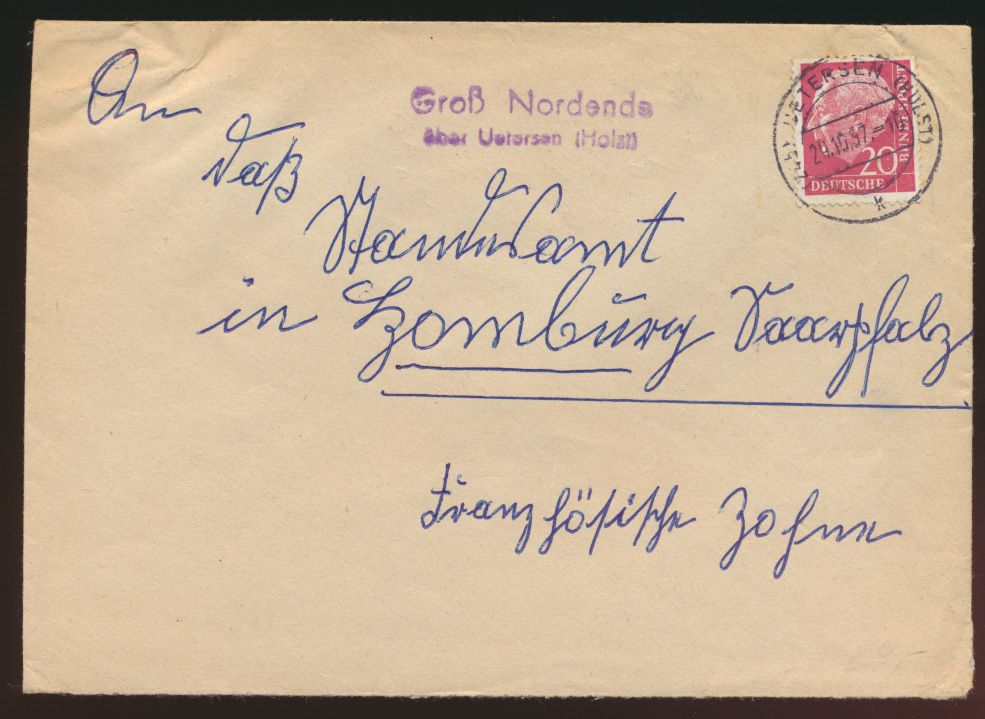 An
daß
Standesamt
in Homburg Saarpfalz
Französische Zohne
Groß Nordende
über Uetersen (Holst)
UETERSEN (HOLST)
29.10.57.-16
k
20
DEUTSCHE
BUNDESPOST